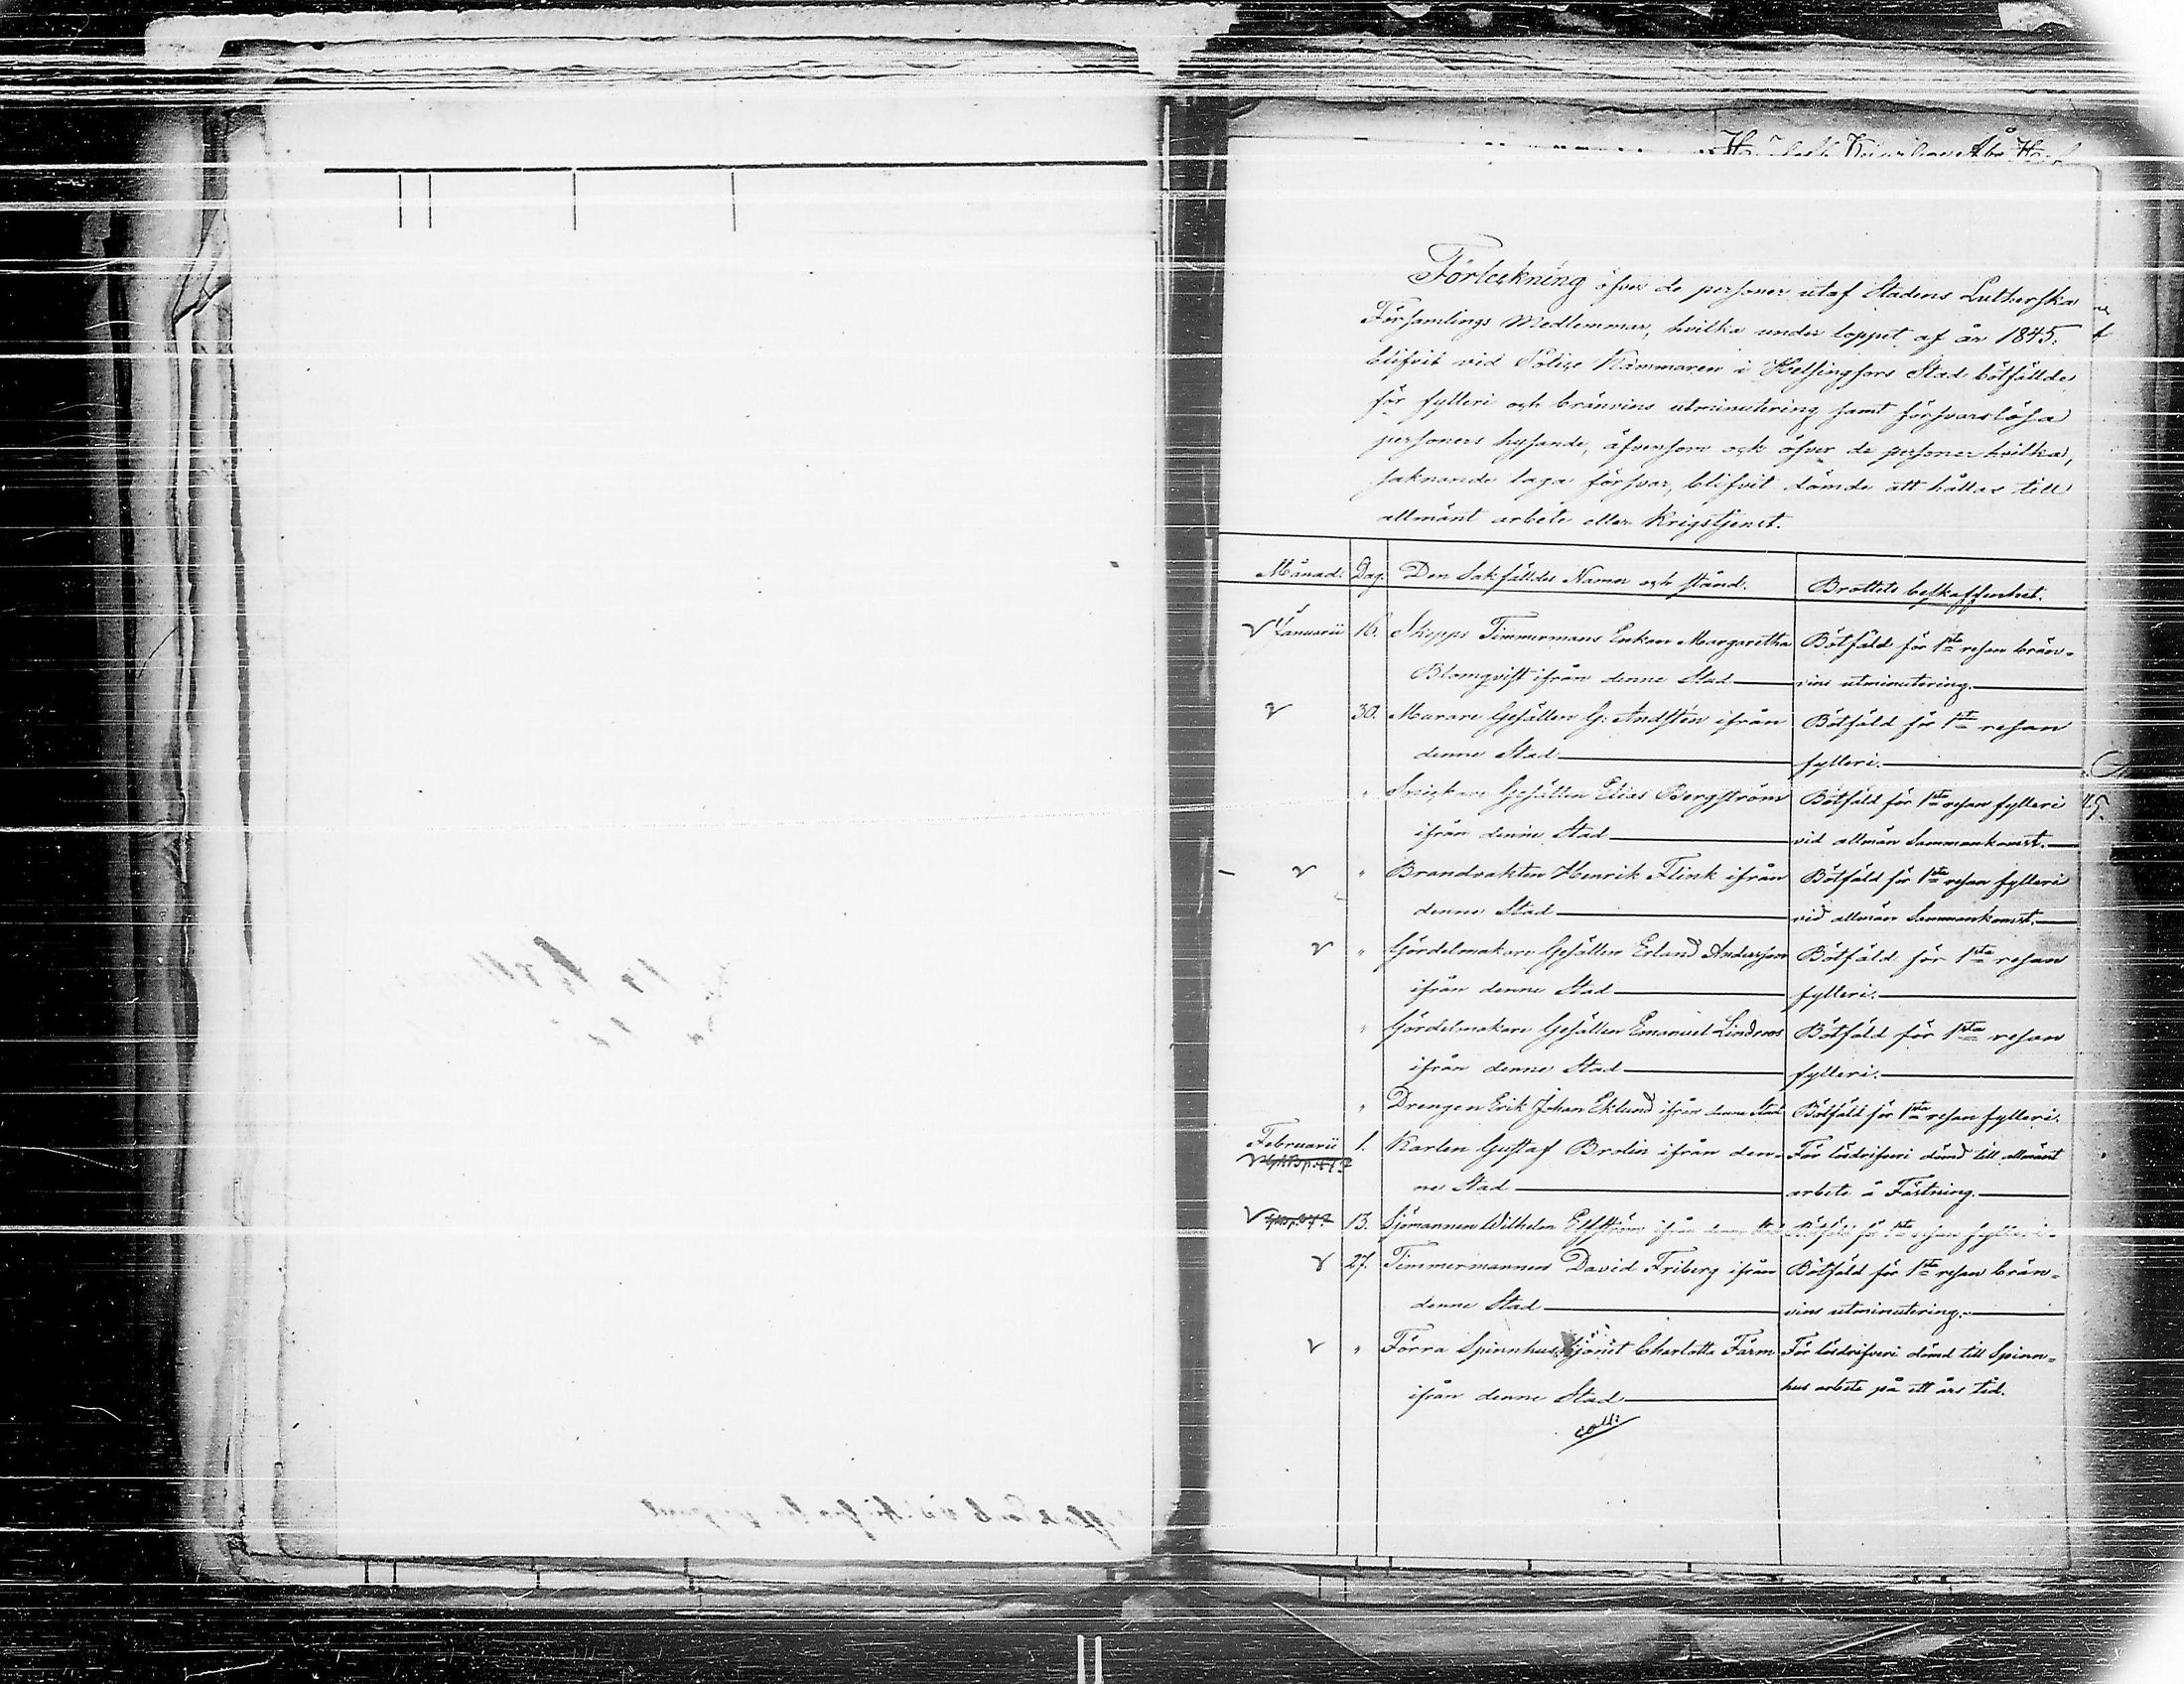 Förteckning öfver de personer utaf Stadens Lutherska
Församlings Medlemmar, hvilka under loppet af år 1845.
blifvit vid Police Kammaren i Helsingfors Stad bötfällde
för fylleri och bränvins utminutering samt försvarslösa
personers hysande, äfvensom och öfver de personer hvilka,
saknande laga försvar, blifvit dömde att hållas till
allmänt arbete eller Krigstjenst.
Månad. Dag. Den Sakfälldes Namn och stånd. Brottets beskaffenhet.
Januarii 16. Skepps Timmermans Enkan Margaretha Bötfäld för 1sta resan brän-
Blomqvist ifrån denne Stad vins utminutering.
30. Murare Gesällen G: Andstén ifrån Bötfäld för 1sta resan
denne Stad fylleri.
" Snickare Gesällen Elias Bergström Bötfäld för 1sta resan fylleri
ifrån denne Stad vid allmän Sammankomst.
" Brandvakten Henrik Flink ifrån Bötfäld för 1sta resan fylleri
denne Stad vid allmän Sammankomst.
" Gördelmakare Gesällen Erland Andersson Bötfäld för 1sta resan
ifrån denne Stad fylleri.
" Gördelmakare Gesällen Emanuel Lindroos Bötfäld för 1sta resan
ifrån denne Stad fylleri.
" Drengen Erik Johan Eklund ifrån denne Stad Bötfäld för 1sta resan fylleri.
Februarii 1. Karlen Gustaf Brolin ifrån den- För lösdrifveri dömd till allmänt
ne Stad arbete å Fästning.
13. Sjömannen Wilhelm ifrån denne Stad Bötfäld för 1sta resan fylleri.
27. Timmermannen David Friberg ifrån Bötfäld för 1sta resan brän-
denne Stad vins utminutering.
" Förra Spinnhus Charlotta Färm För lösdrifveri dömd till Spinn-
ifrån denne Stad hus arbete på ett års tid.